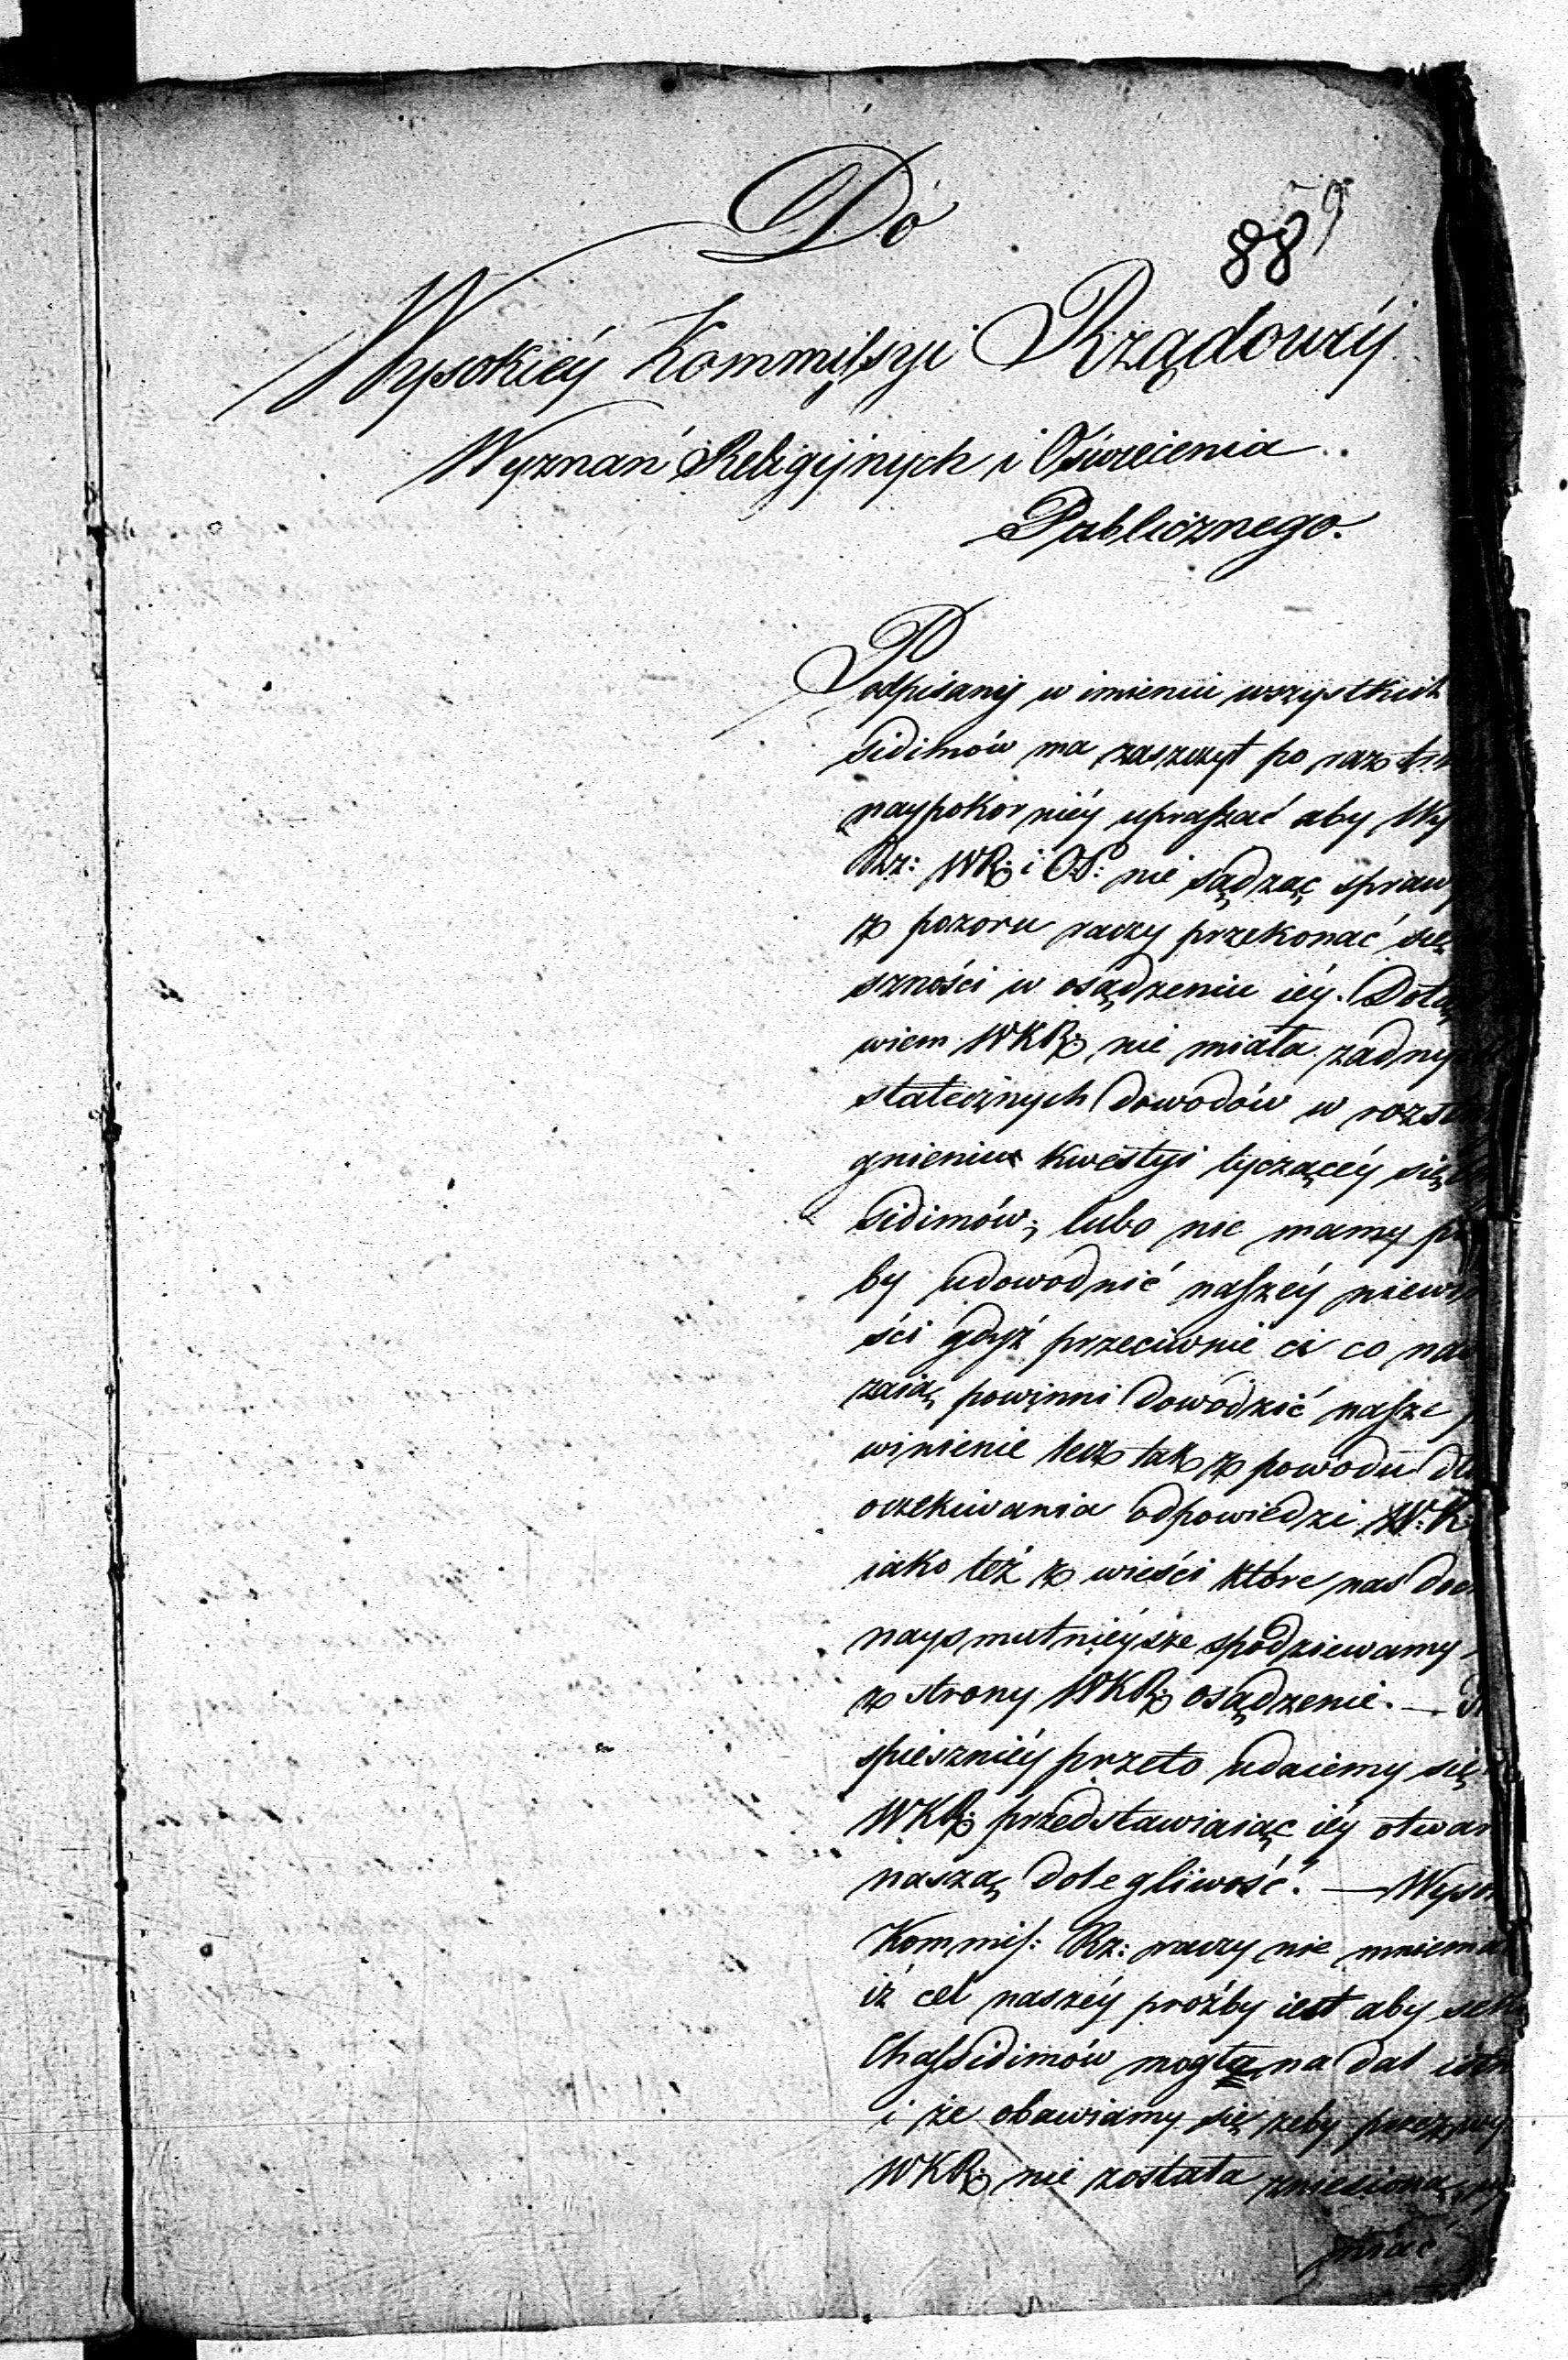 Do
88
Wysokiéy Kommissyi Rządowéy
Wyznań Religijnych i Oświecenia
Publicznego.
Podpisany w imieniu wszystkich
sidimów ma zaszczyt po raz
naypokorniéy upraszać aby Wy
Rz: WR: i O.P: nie sądząc spraw
z pozoru raczy przekonać się
szności w osądzeniu iéy. Dotą
wiem WKR: nie miała żadnych
statecznych dowodów w rozst
gnieniu kwestyi tyczącéy się
sidimów; lubo nie mamy p
by udowodnić naszéy niewi
ści gdyż przeciwnie ci co na
zaią powinni dowodzić nasze
winienie lecz tak z powodu dł
oczekiwania odpowiedzi W: K:
iako też z wieści które nas do
naysmutniéysze spodziewamy
z strony WKR: osądzenie. —
spieszniéy przeto udaiemy się
WKR: przedstawiaiąc iéy otwar
naszą dolegliwość. — Wyso
Kommis: Rz: raczy nie mniema
iż cel naszéy proźby iest aby sek
Chassidimów mogła na dal istn
i że obawiamy się żeby przez wy
WKR: nie została zniesioną,